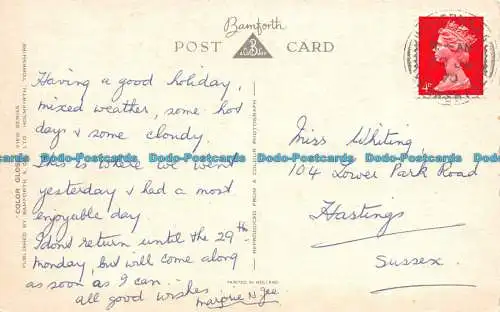 Bamforth
POST CARD
Having a good holiday,
mixed weather, some hot
days & some cloudy.
This is where we went
yesterday & had a most
enjoyable day
I dont return until the 29th
Monday, but will come along
as soon as I can.
all good wishes
"COLOR GLOSS" VIEW SERIES
PUBLISHED BY BAMFORTH & CO. LTD HOLMFIRTH, YORKSHIRE
REPRODUCED FROM A COLOUR PHOTOGRAPH
PRINTED IN HOLLAND
4D
Miss Whiting,
104 Lower Park Road
Hastings
Sussex.
Dodo-Postcards Dodo-Postcards Dodo-Postcards Dodo-Postcards